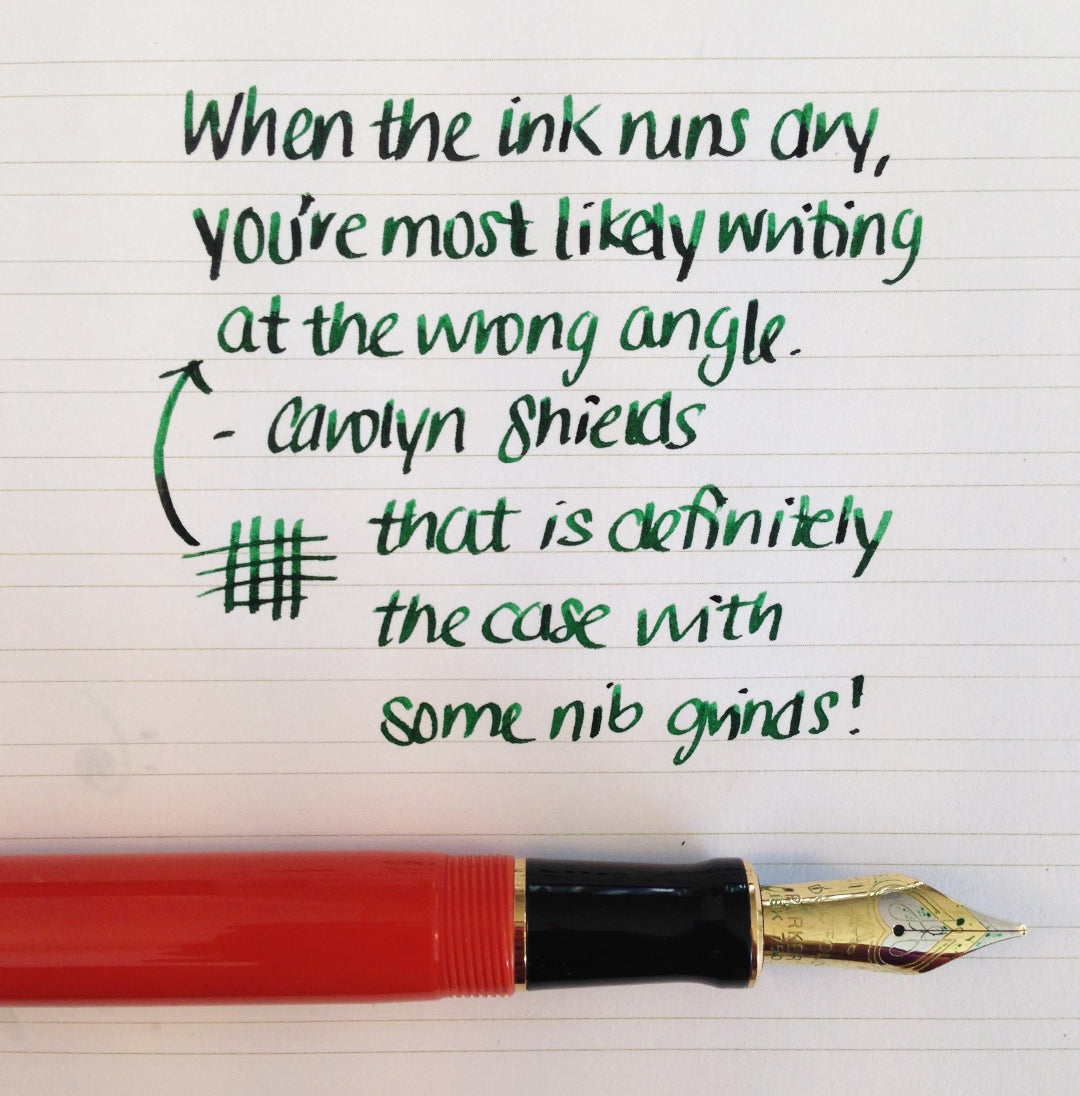 When the ink runs dry,
you're most likely writing
at the wrong angle.
- Carolyn Shields
that is definitely
the case with
some nib grinds!
PARKER
18K 750